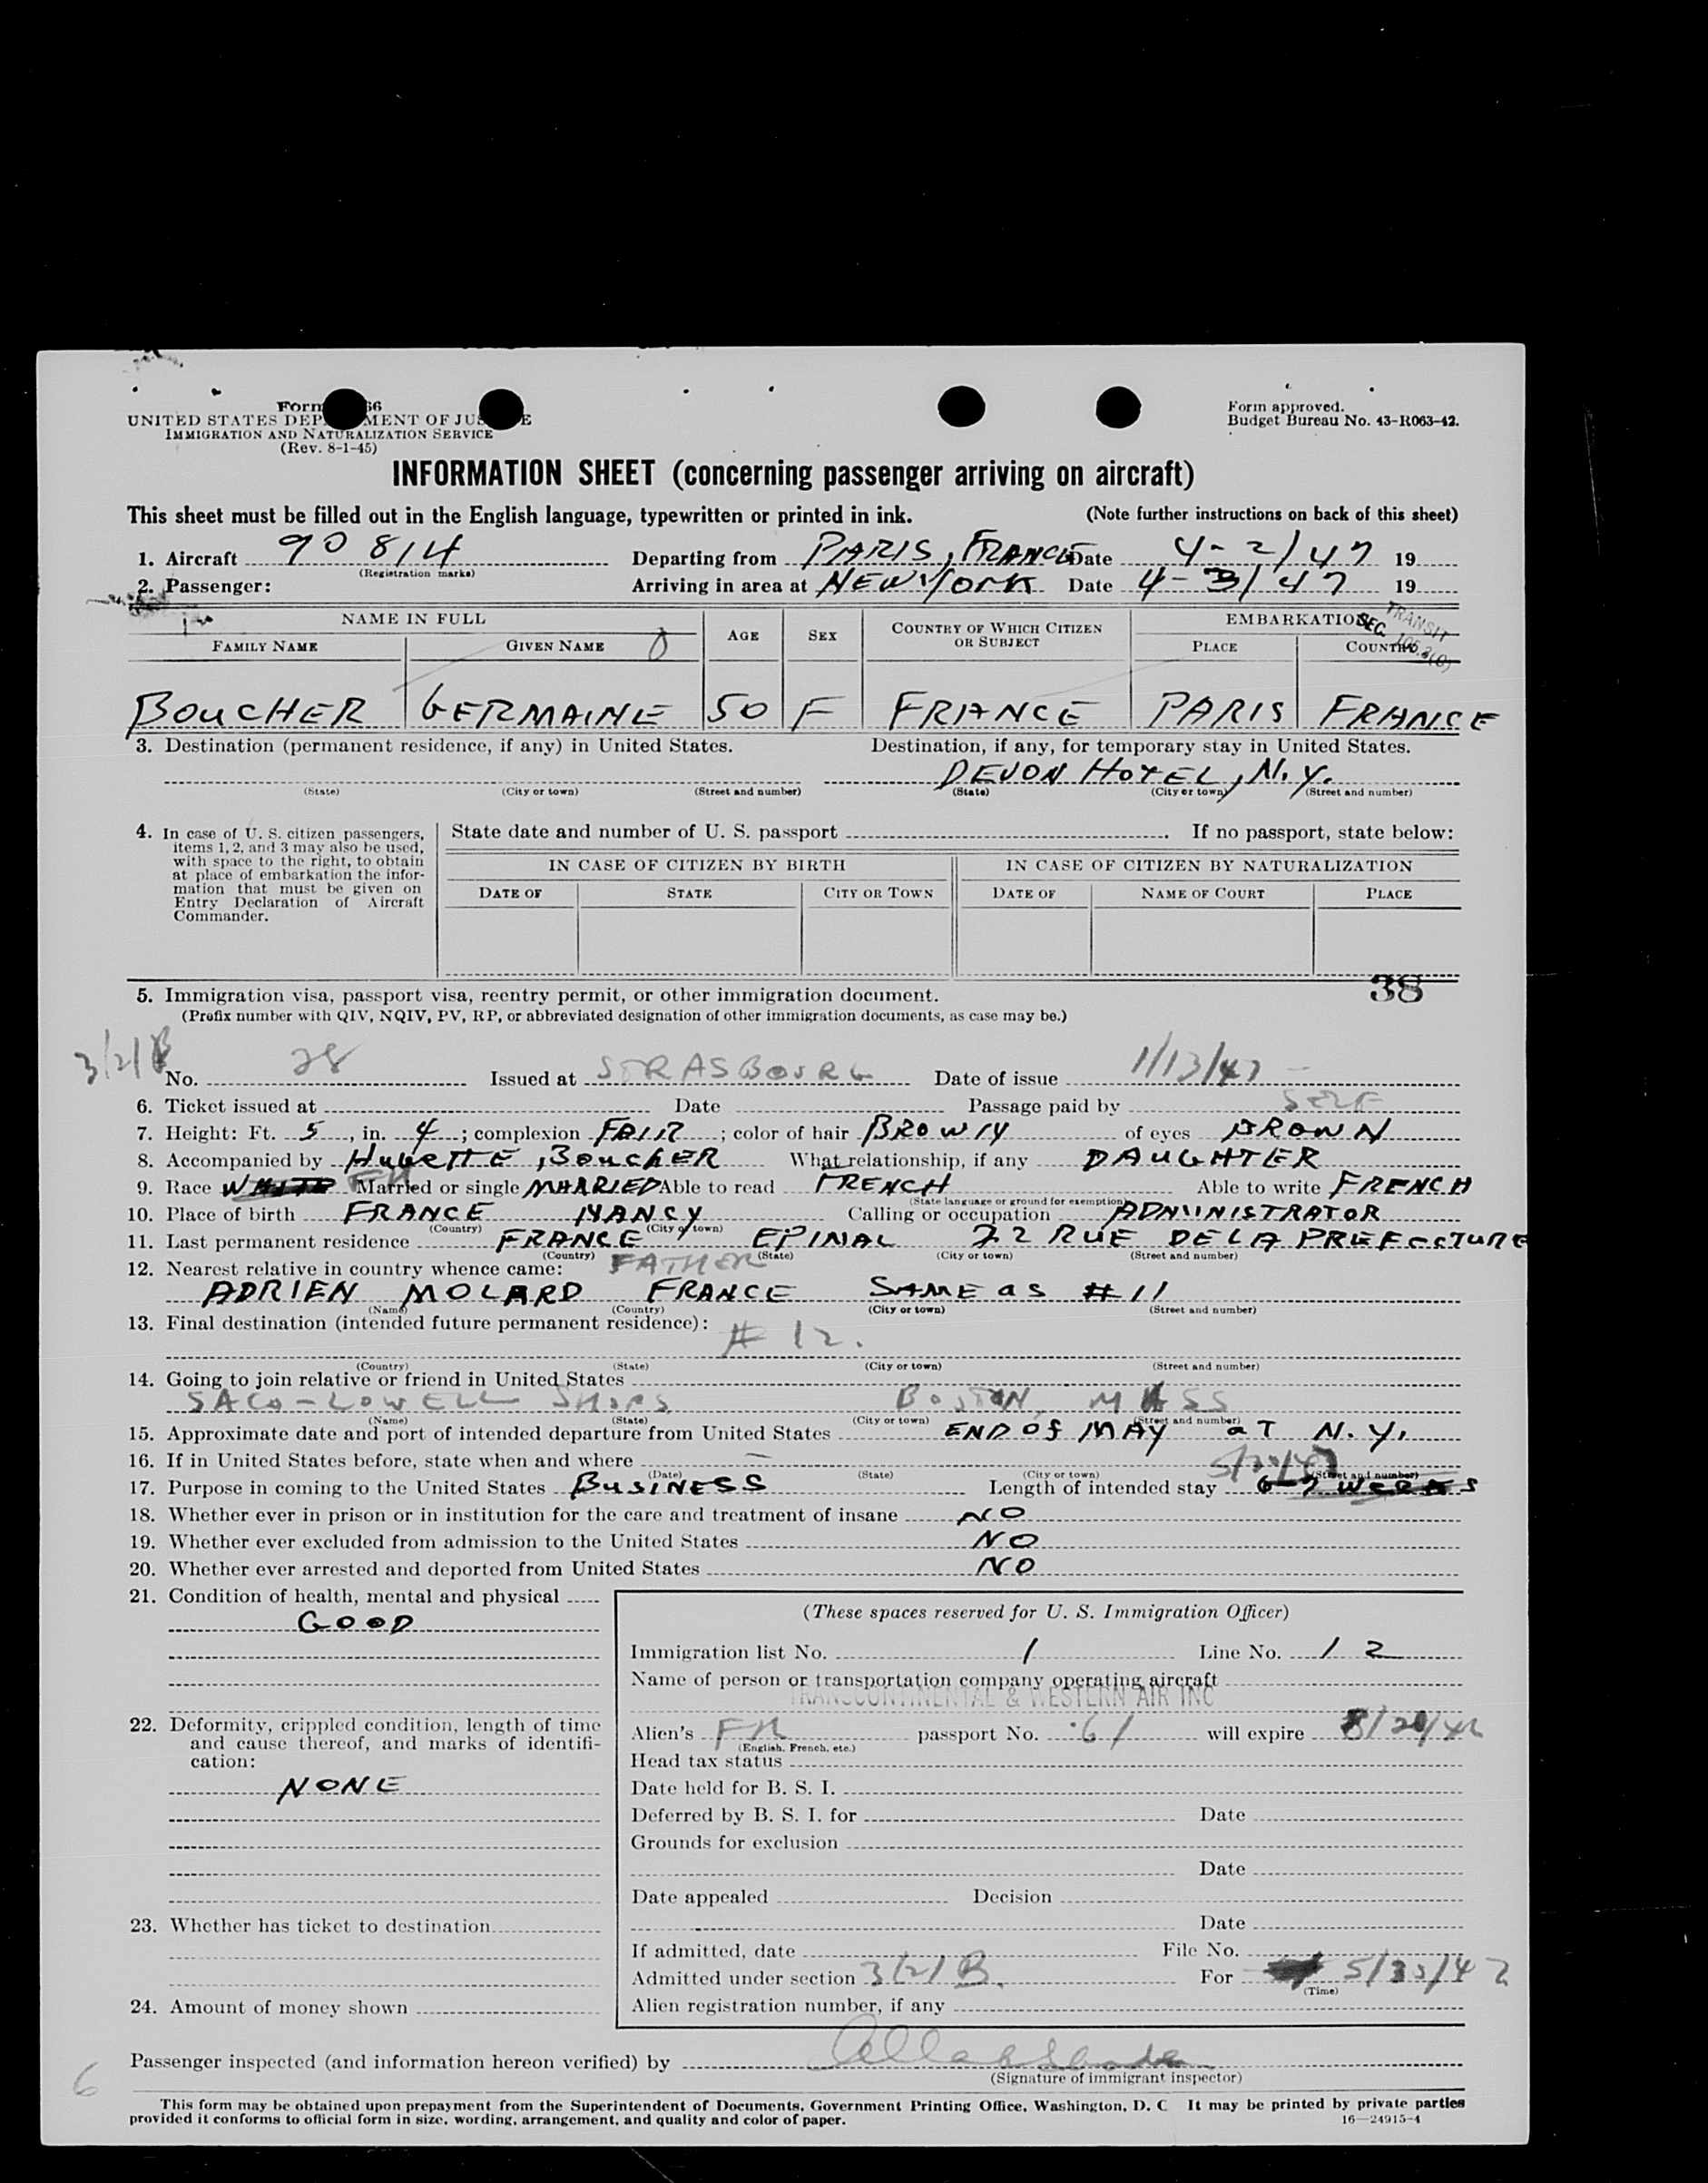 Form 66
UNITED STATES DEP MENT OF JUS E
IMMIGRATION AND NATURALIZATION SERVICE
(Rev. 8-1-45)
Form approved.
Budget Bureau No. 43-R063-42.
INFORMATION SHEET (concerning passenger arriving on aircraft)
This sheet must be filled out in the English language, typewritten or printed in ink. (Note further instructions on back of this sheet)
1. Aircraft 90814 Departing from PARIS, FRANCE Date 4-2/47 19
(Registration marks)
2. Passenger: Arriving in area at NEW YORK Date 4-3/47 19
TRANSIT
SEC.
NAME IN FULL AGE SEX COUNTRY OF WHICH CITIZEN OR SUBJECT EMBARKATION
FAMILY NAME GIVEN NAME PLACE COUNTRY
BOUCHER GERMAINE 50 F FRANCE PARIS FRANCE
3. Destination (permanent residence, if any) in United States. Destination, if any, for temporary stay in United States.
DEVON HOTEL, N.Y.
(State) (City or town) (Street and number) (State) (City or town) (Street and number)
4. In case of U. S. citizen passengers, items 1, 2, and 3 may also be used, with space to the right, to obtain at place of embarkation the information that must be given on Entry Declaration of Aircraft Commander.
State date and number of U. S. passport . If no passport, state below:
IN CASE OF CITIZEN BY BIRTH IN CASE OF CITIZEN BY NATURALIZATION
DATE OF STATE CITY OR TOWN DATE OF NAME OF COURT PLACE
38
5. Immigration visa, passport visa, reentry permit, or other immigration document.
(Prefix number with QIV, NQIV, PV, RP, or abbreviated designation of other immigration documents, as case may be.)
3/2/B
No. 28 Issued at STRASBOURG Date of issue 1/13/47
6. Ticket issued at Date Passage paid by SELF
7. Height: Ft. 5, in. 4; complexion FAIR; color of hair BROWN of eyes BROWN
8. Accompanied by HUGETTE, BOUCHER What relationship, if any DAUGHTER
9. Race WHITE FR Married or single MARRIED Able to read FRENCH Able to write FRENCH
(State language or ground for exemption)
10. Place of birth FRANCE NANCY Calling or occupation ADMINISTRATOR
(Country) (City or town)
11. Last permanent residence FRANCE EPINAL 22 RUE DE LA PREFECTURE
(Country) (State) (City or town) (Street and number)
12. Nearest relative in country whence came: FATHER
ADRIEN MOLARD FRANCE SAME as #11
(Name) (Country) (City or town) (Street and number)
13. Final destination (intended future permanent residence): # 12.
(Country) (State) (City or town) (Street and number)
14. Going to join relative or friend in United States
SACO-LOWELL SHOPS BOSTON, MASS
(Name) (State) (City or town) (Street and number)
15. Approximate date and port of intended departure from United States END of MAY aT N.Y.
16. If in United States before, state when and where —
(Date) (State) (City or town) (Street and number)
17. Purpose in coming to the United States BUSINESS Length of intended stay 6-7 WEEKS
18. Whether ever in prison or in institution for the care and treatment of insane NO
19. Whether ever excluded from admission to the United States NO
20. Whether ever arrested and deported from United States NO
21. Condition of health, mental and physical
GOOD
22. Deformity, crippled condition, length of time and cause thereof, and marks of identification:
NONE
23. Whether has ticket to destination
24. Amount of money shown
(These spaces reserved for U. S. Immigration Officer)
Immigration list No. 1 Line No. 12
Name of person or transportation company operating aircraft
TRANSCONTINENTAL & WESTERN AIR INC
Alien's FR passport No. 61 will expire
(English, French, etc.)
Head tax status
Date held for B. S. I.
Deferred by B. S. I. for Date
Grounds for exclusion
Date
Date appealed Decision
Date
If admitted, date File No.
Admitted under section 3/2/B. For
(Time)
Alien registration number, if any
Passenger inspected (and information hereon verified) by
(Signature of immigrant inspector)
6
This form may be obtained upon prepayment from the Superintendent of Documents, Government Printing Office, Washington, D. C It may be printed by private parties
provided it conforms to official form in size, wording, arrangement, and quality and color of paper. 16—24915-4